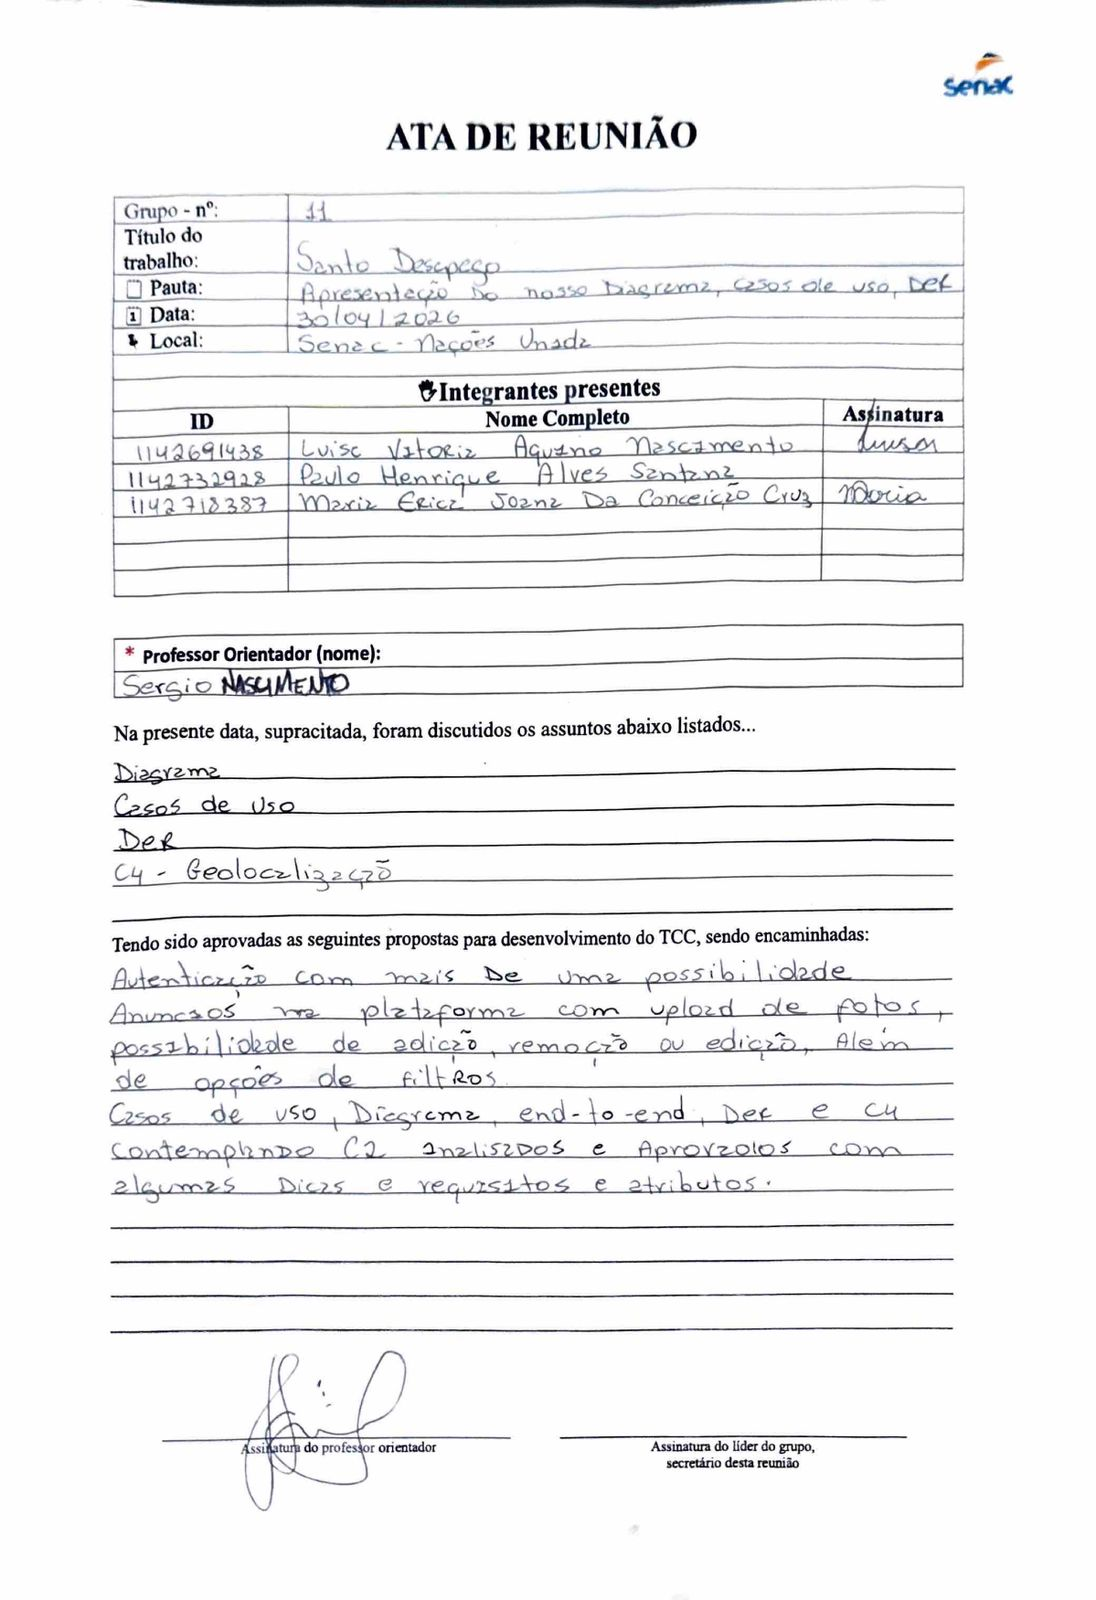 Senac
ATA DE REUNIÃO
Grupo - nº: 11
Título do
trabalho: Santo Desapego
Pauta: Apresentação Do nosso Diagrama, Casos de uso, DER
Data: 30/04/2026
Local: Senac - Nações Unida
Integrantes presentes
ID Nome Completo Assinatura
1142691438 Luisa Vitoria Aquino Nascimento Luisa
1142732928 Paulo Henrique Alves Santana
1142718387 Maria Erica Joana Da Conceição Cruz Maria
* Professor Orientador (nome):
Sergio NASCIMENTO
Na presente data, supracitada, foram discutidos os assuntos abaixo listados...
Diagrama
Casos de Uso
DER
C4 - Geolocalização
Tendo sido aprovadas as seguintes propostas para desenvolvimento do TCC, sendo encaminhadas:
Autenticação com mais De uma possibilidade
Anuncios na plataforma com upload de fotos,
possibilidade de adição, remoção ou edição, Alem
de opções de filtros
Casos de uso, Diagrama, end-to-end, Der e C4
Contemplando C2 Analisados e Aprovados com
algumas Dicas e requisitos e atributos.
Assinatura do professor orientador
Assinatura do líder do grupo,
secretário desta reunião